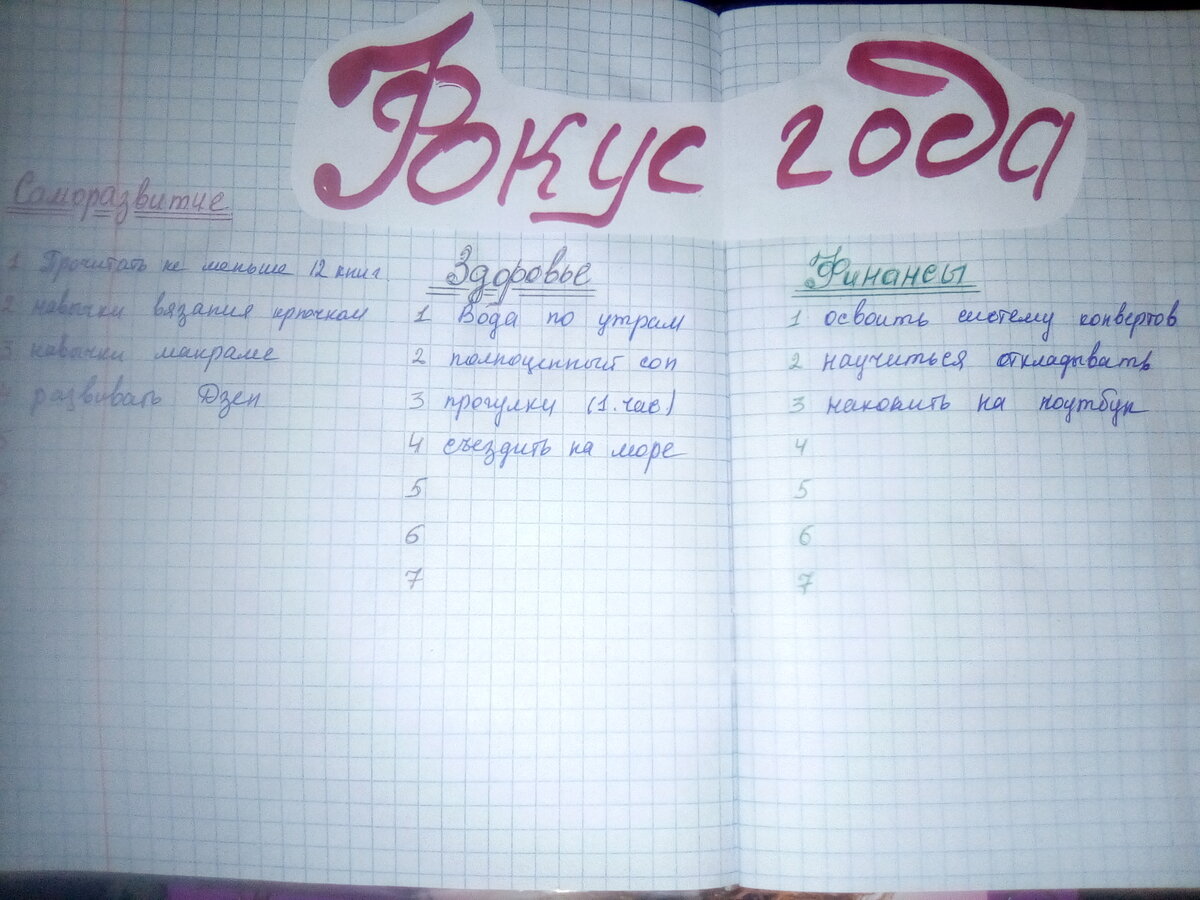 Фокус года
Саморазвитие
1 Прочитать не меньше 12 книг
2 навычки вязания крючком
3 навычки макраме
4 развивать Дзен
5
Здоровье
1 Вода по утрам
2 полноценный сон
3 прогулки (1.час)
4 съездить на море
5
6
7
Финансы
1 освоить систему конвертов
2 научиться откладывать
3 накопить на ноутбук
4
5
6
7